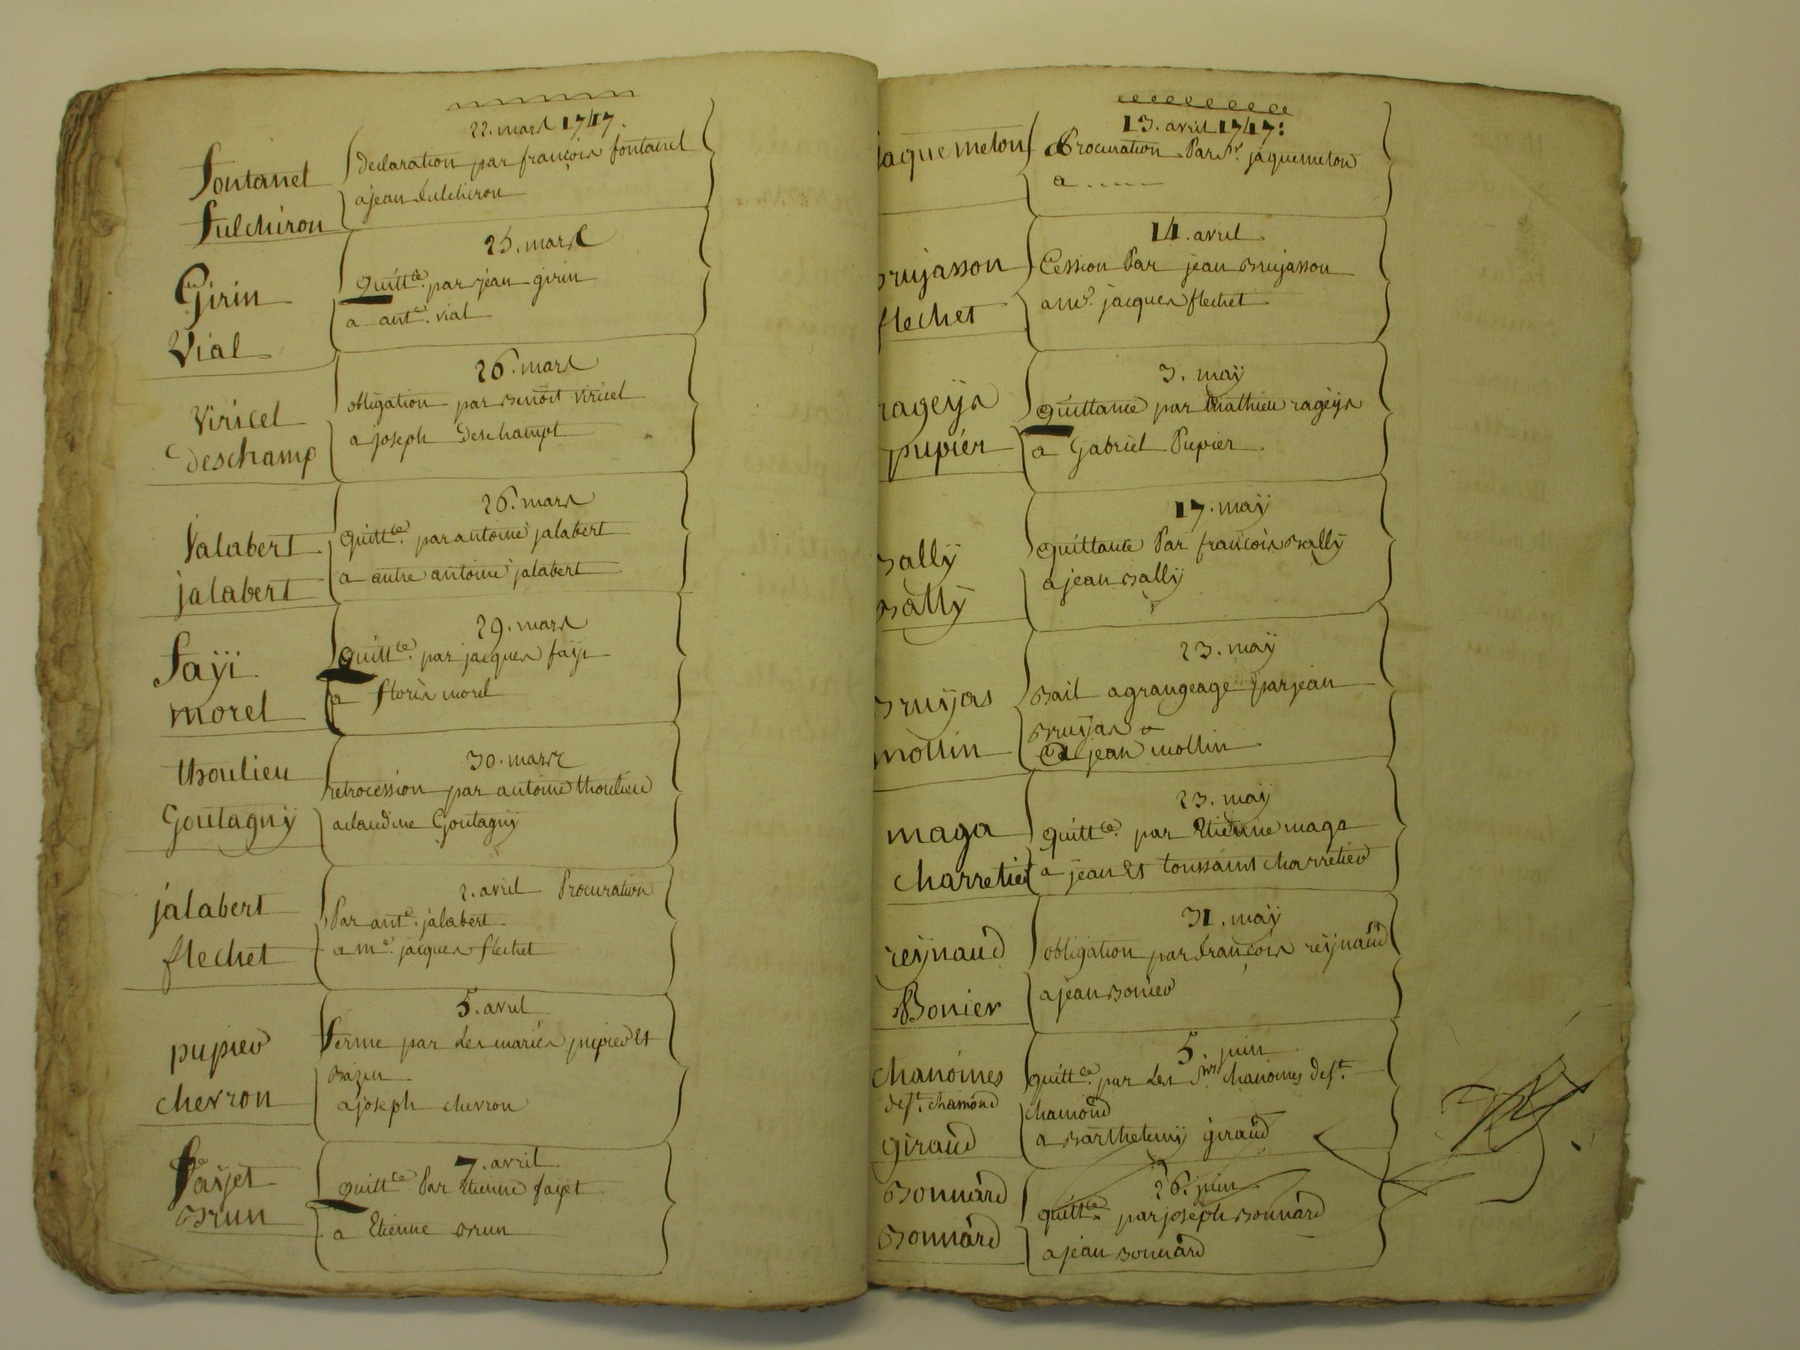 22. mars 1747.
fontanet
declaration par françois fontanet
fulchiron
a jean fulchiron
25. mars
Girin
Quitt.ce par jean girin
Vial
a ant.e vial
26. mars
Viricel
obligation par Benoit viricel
Deschamp
a joseph Deschampt
26. mars
Jalabert
Quitt.ce par antoine jalabert
jalabert
a autre antoine jalabert
29. mars
faÿi
Quitt.ce par jacques faÿi
morel
a floris morel
30. mars
thoulieu
retrocession par antoine thoulieu
Goutagnÿ
a claudine Goutagnÿ
2. avril Procuration
jalabert
Par ant.e jalabert
flechet
a m.e jacques flechet
5. avril
pupier
ferme par Les mariés pupier Et
Bazin
chevron
a joseph chevron
7. avril
faÿet
Quitt.ce Par Etienne faÿet
Brun
a Etienne Brun
13. avril 1747:
jaquemeton
Procuration Par Sr. jaquemeton
a .....
14. avril
Brujasson
Cession Par jean Brujasson
flechet
a me. jacques flechet
3. maÿ
rageÿs
Quittance par Mathieu rageÿs
pupier
a Gabriel Pupier
17. maÿ
Ballÿ
Quittance Par françois Ballÿ
Ballÿ
a jean Ballÿ
23. maÿ
Bruÿas
Bail a grangeage par jean
Bruÿas
mollin
a jean mollin
23. maÿ
maga
Quitt.ce par Etienne maga
charretier
a jean Et toussaint charretier
31. maÿ
reÿnaud
obligation par françois reÿnaud
Bonier
a jean Bonier
5. juin
chanoines
Quitt.ce par Les Srs. chanoines de St.
de St. chamond
chamond
giraud
a Barthelemÿ giraud
26. juin
Bonnard
Quitt.ce par joseph Bonnard
Bonnard
a jean Bonnard